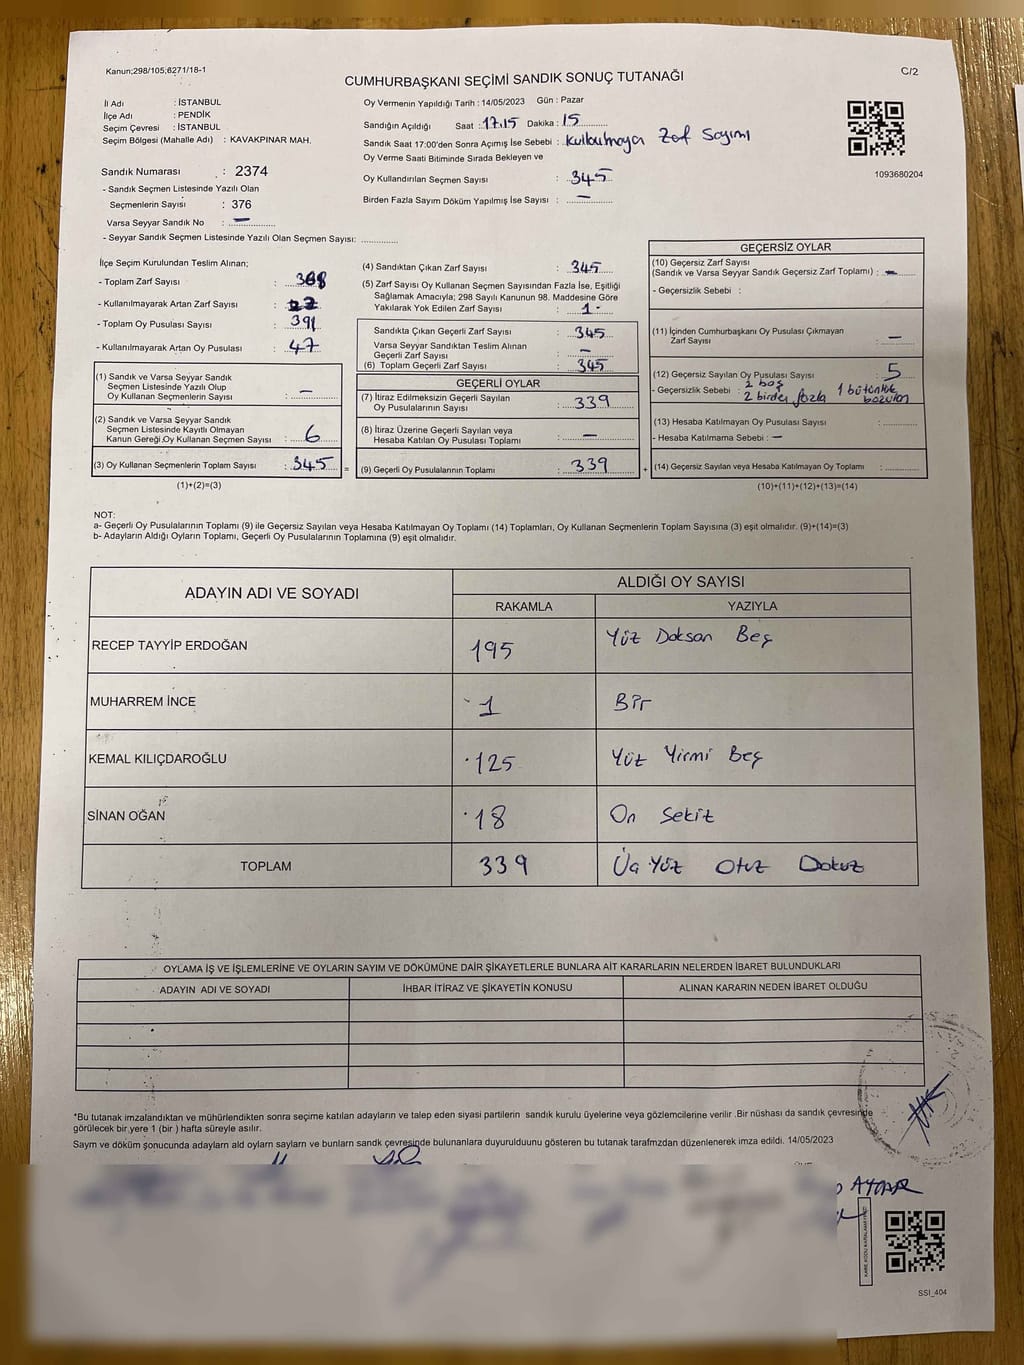 Kanun;298/105;6271/18-1
C/2
CUMHURBAŞKANI SEÇİMİ SANDIK SONUÇ TUTANAĞI
İl Adı : İSTANBUL
İlçe Adı : PENDİK
Seçim Çevresi : İSTANBUL
Seçim Bölgesi (Mahalle Adı) : KAVAKPINAR MAH.
Oy Vermenin Yapıldığı Tarih : 14/05/2023 Gün : Pazar
Sandığın Açıldığı Saat : 17.15 Dakika : 15
Sandık Saat 17:00'den Sonra Açımış İse Sebebi : Zarf Sayımı
Oy Verme Saati Bitiminde Sırada Bekleyen ve
Oy Kullandırılan Seçmen Sayısı : 345
Birden Fazla Sayım Döküm Yapılmış İse Sayısı : —
1093680204
Sandık Numarası : 2374
- Sandık Seçmen Listesinde Yazılı Olan
Seçmenlerin Sayısı : 376
Varsa Seyyar Sandık No : —
- Seyyar Sandık Seçmen Listesinde Yazılı Olan Seçmen Sayısı: ............
İlçe Seçim Kurulundan Teslim Alınan;
- Toplam Zarf Sayısı :
- Kullanılmayarak Artan Zarf Sayısı :
- Toplam Oy Pusulası Sayısı : 391
- Kullanılmayarak Artan Oy Pusulası : 47
(1) Sandık ve Varsa Seyyar Sandık
Seçmen Listesinde Yazılı Olup
Oy Kullanan Seçmenlerin Sayısı : —
(2) Sandık ve Varsa Seyyar Sandık
Seçmen Listesinde Kayıtlı Olmayan
Kanun Gereği,Oy Kullanan Seçmen Sayısı : 6
(3) Oy Kullanan Seçmenlerin Toplam Sayısı : 345 =
(1)+(2)=(3)
(4) Sandıktan Çıkan Zarf Sayısı : 345
(5) Zarf Sayısı Oy Kullanan Seçmen Sayısından Fazla İse, Eşitliği
Sağlamak Amacıyla; 298 Sayılı Kanunun 98. Maddesine Göre
Yakılarak Yok Edilen Zarf Sayısı : 1
Sandıkta Çıkan Geçerli Zarf Sayısı : 345
Varsa Seyyar Sandıktan Teslim Alınan
Geçerli Zarf Sayısı : —
(6) Toplam Geçerli Zarf Sayısı : 345
GEÇERLİ OYLAR
(7) İtiraz Edilmeksizin Geçerli Sayılan
Oy Pusulalarının Sayısı : 339
(8) İtiraz Üzerine Geçerli Sayılan veya
Hesaba Katılan Oy Pusulası Toplamı : —
(9) Geçerli Oy Pusulalarının Toplamı : 339 +
GEÇERSİZ OYLAR
(10) Geçersiz Zarf Sayısı
(Sandık ve Varsa Seyyar Sandık Geçersiz Zarf Toplamı) : —
- Geçersizlik Sebebi :
(11) İçinden Cumhurbaşkanı Oy Pusulası Çıkmayan
Zarf Sayısı : —
(12) Geçersiz Sayılan Oy Pusulası Sayısı : 5
- Geçersizlik Sebebi : 2 boş
2 birden fazla 1 bütünlük bozulan
(13) Hesaba Katılmayan Oy Pusulası Sayısı : ............
- Hesaba Katılmama Sebebi : —
(14) Geçersiz Sayılan veya Hesaba Katılmayan Oy Toplamı : ............
(10)+(11)+(12)+(13)=(14)
NOT:
a- Geçerli Oy Pusulalarının Toplamı (9) ile Geçersiz Sayılan veya Hesaba Katılmayan Oy Toplamı (14) Toplamları, Oy Kullanan Seçmenlerin Toplam Sayısına (3) eşit olmalıdır. (9)+(14)=(3)
b- Adayların Aldığı Oyların Toplamı, Geçerli Oy Pusulalarının Toplamına (9) eşit olmalıdır.
ADAYIN ADI VE SOYADI
ALDIĞI OY SAYISI
RAKAMLA YAZIYLA
RECEP TAYYİP ERDOĞAN 195 Yüz Doksan Beş
MUHARREM İNCE 1 Bir
KEMAL KILIÇDAROĞLU 125 Yüz Yirmi Beş
SİNAN OĞAN 18 On Sekiz
TOPLAM 339 Üç Yüz Otuz Dokuz
OYLAMA İŞ VE İŞLEMLERİNE VE OYLARIN SAYIM VE DÖKÜMÜNE DAİR ŞİKAYETLERLE BUNLARA AİT KARARLARIN NELERDEN İBARET BULUNDUKLARI
ADAYIN ADI VE SOYADI İHBAR İTİRAZ VE ŞİKAYETİN KONUSU ALINAN KARARIN NEDEN İBARET OLDUĞU
*Bu tutanak imzalandıktan ve mühürlendikten sonra seçime katılan adayların ve talep eden siyasi partilerin sandık kurulu üyelerine veya gözlemcilerine verilir .Bir nüshası da sandık çevresinde
görülecek bir yere 1 (bir ) hafta süreyle asılır.
Sayım ve döküm şonucunda adayların ald oyların sayların ve bunların sandk çevresinde bulunanlara duyurulduunu gösteren bu tutanak tarafmzdan düzenlenerek imza edildi. 14/05/2023
SSI_404